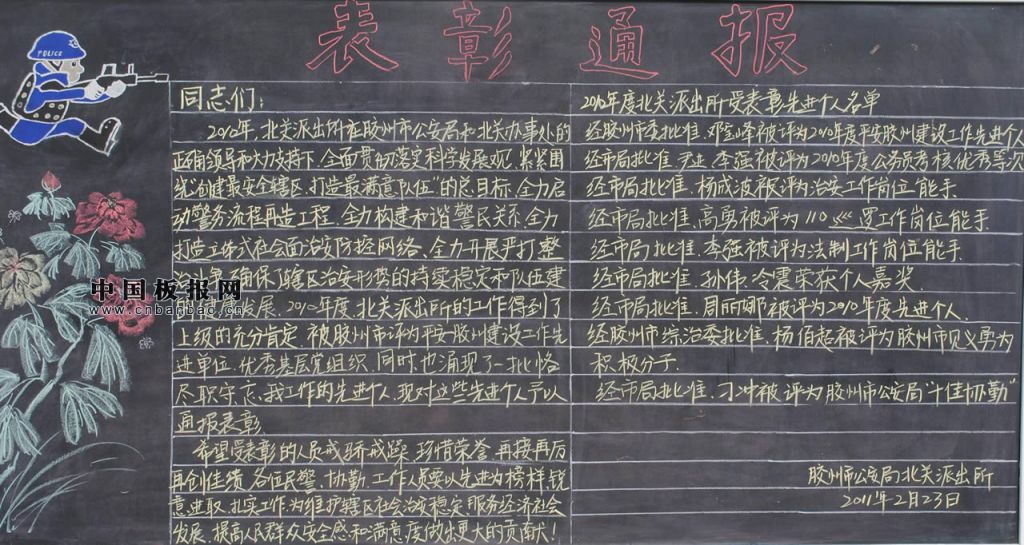 表彰通报
POLICE
同志们：
2010年，北关派出所在胶州市公安局和北关办事处的
正确领导和大力支持下，全面贯彻落实科学发展观，紧紧围
绕"创建最安全辖区，打造最满意队伍"的总目标，全力启
动警务流程再造工程，全力构建和谐警民关系，全力
打造立体式社会面治安防控网络、全力开展严打整
治 确保了辖区治安形势的持续稳定和队伍建
发展。2010年度，北关派出所的工作得到了
上级的充分肯定，被胶州市评为平安胶州建设工作先
进单位、优秀基层党组织，同时，也涌现了一批恪
尽职守、忘我工作的先进个人，现对这些先进个人予以
通报表彰。
希望受表彰的人员戒骄戒躁，珍惜荣誉，再接再厉
再创佳绩，各位民警、协勤、工作人员要以先进为榜样，锐
意进取，扎实工作，为维护辖区社会治安稳定，服务经济社会
发展，提高人民群众安全感和满意度做出更大的贡献！
2010年度北关派出所受表彰先进个人名单
经胶州市委批准，邓 峰被评为2010年度平安胶州建设工作先进个人
经市局批准，尹业、李强被评为2010年度公务员考核优秀等次
经市局批准，杨成波被评为治安工作岗位能手.
经市局批准，高勇被评为110 逻工作岗位能手.
经市局批准，李强被评为法制工作岗位能手.
经市局批准，孙伟、冷震荣获个人嘉奖.
经市局批准，周丽娜被评为2010年度先进个人.
经胶州市综治委批准，杨佰起被评为胶州市见义勇为
积极分子.
经市局批准，刁冲被评为胶州市公安局"十佳协勤"
胶州市公安局北关派出所
2011年2月23日
中国板报网
www.cnbanbao.cn